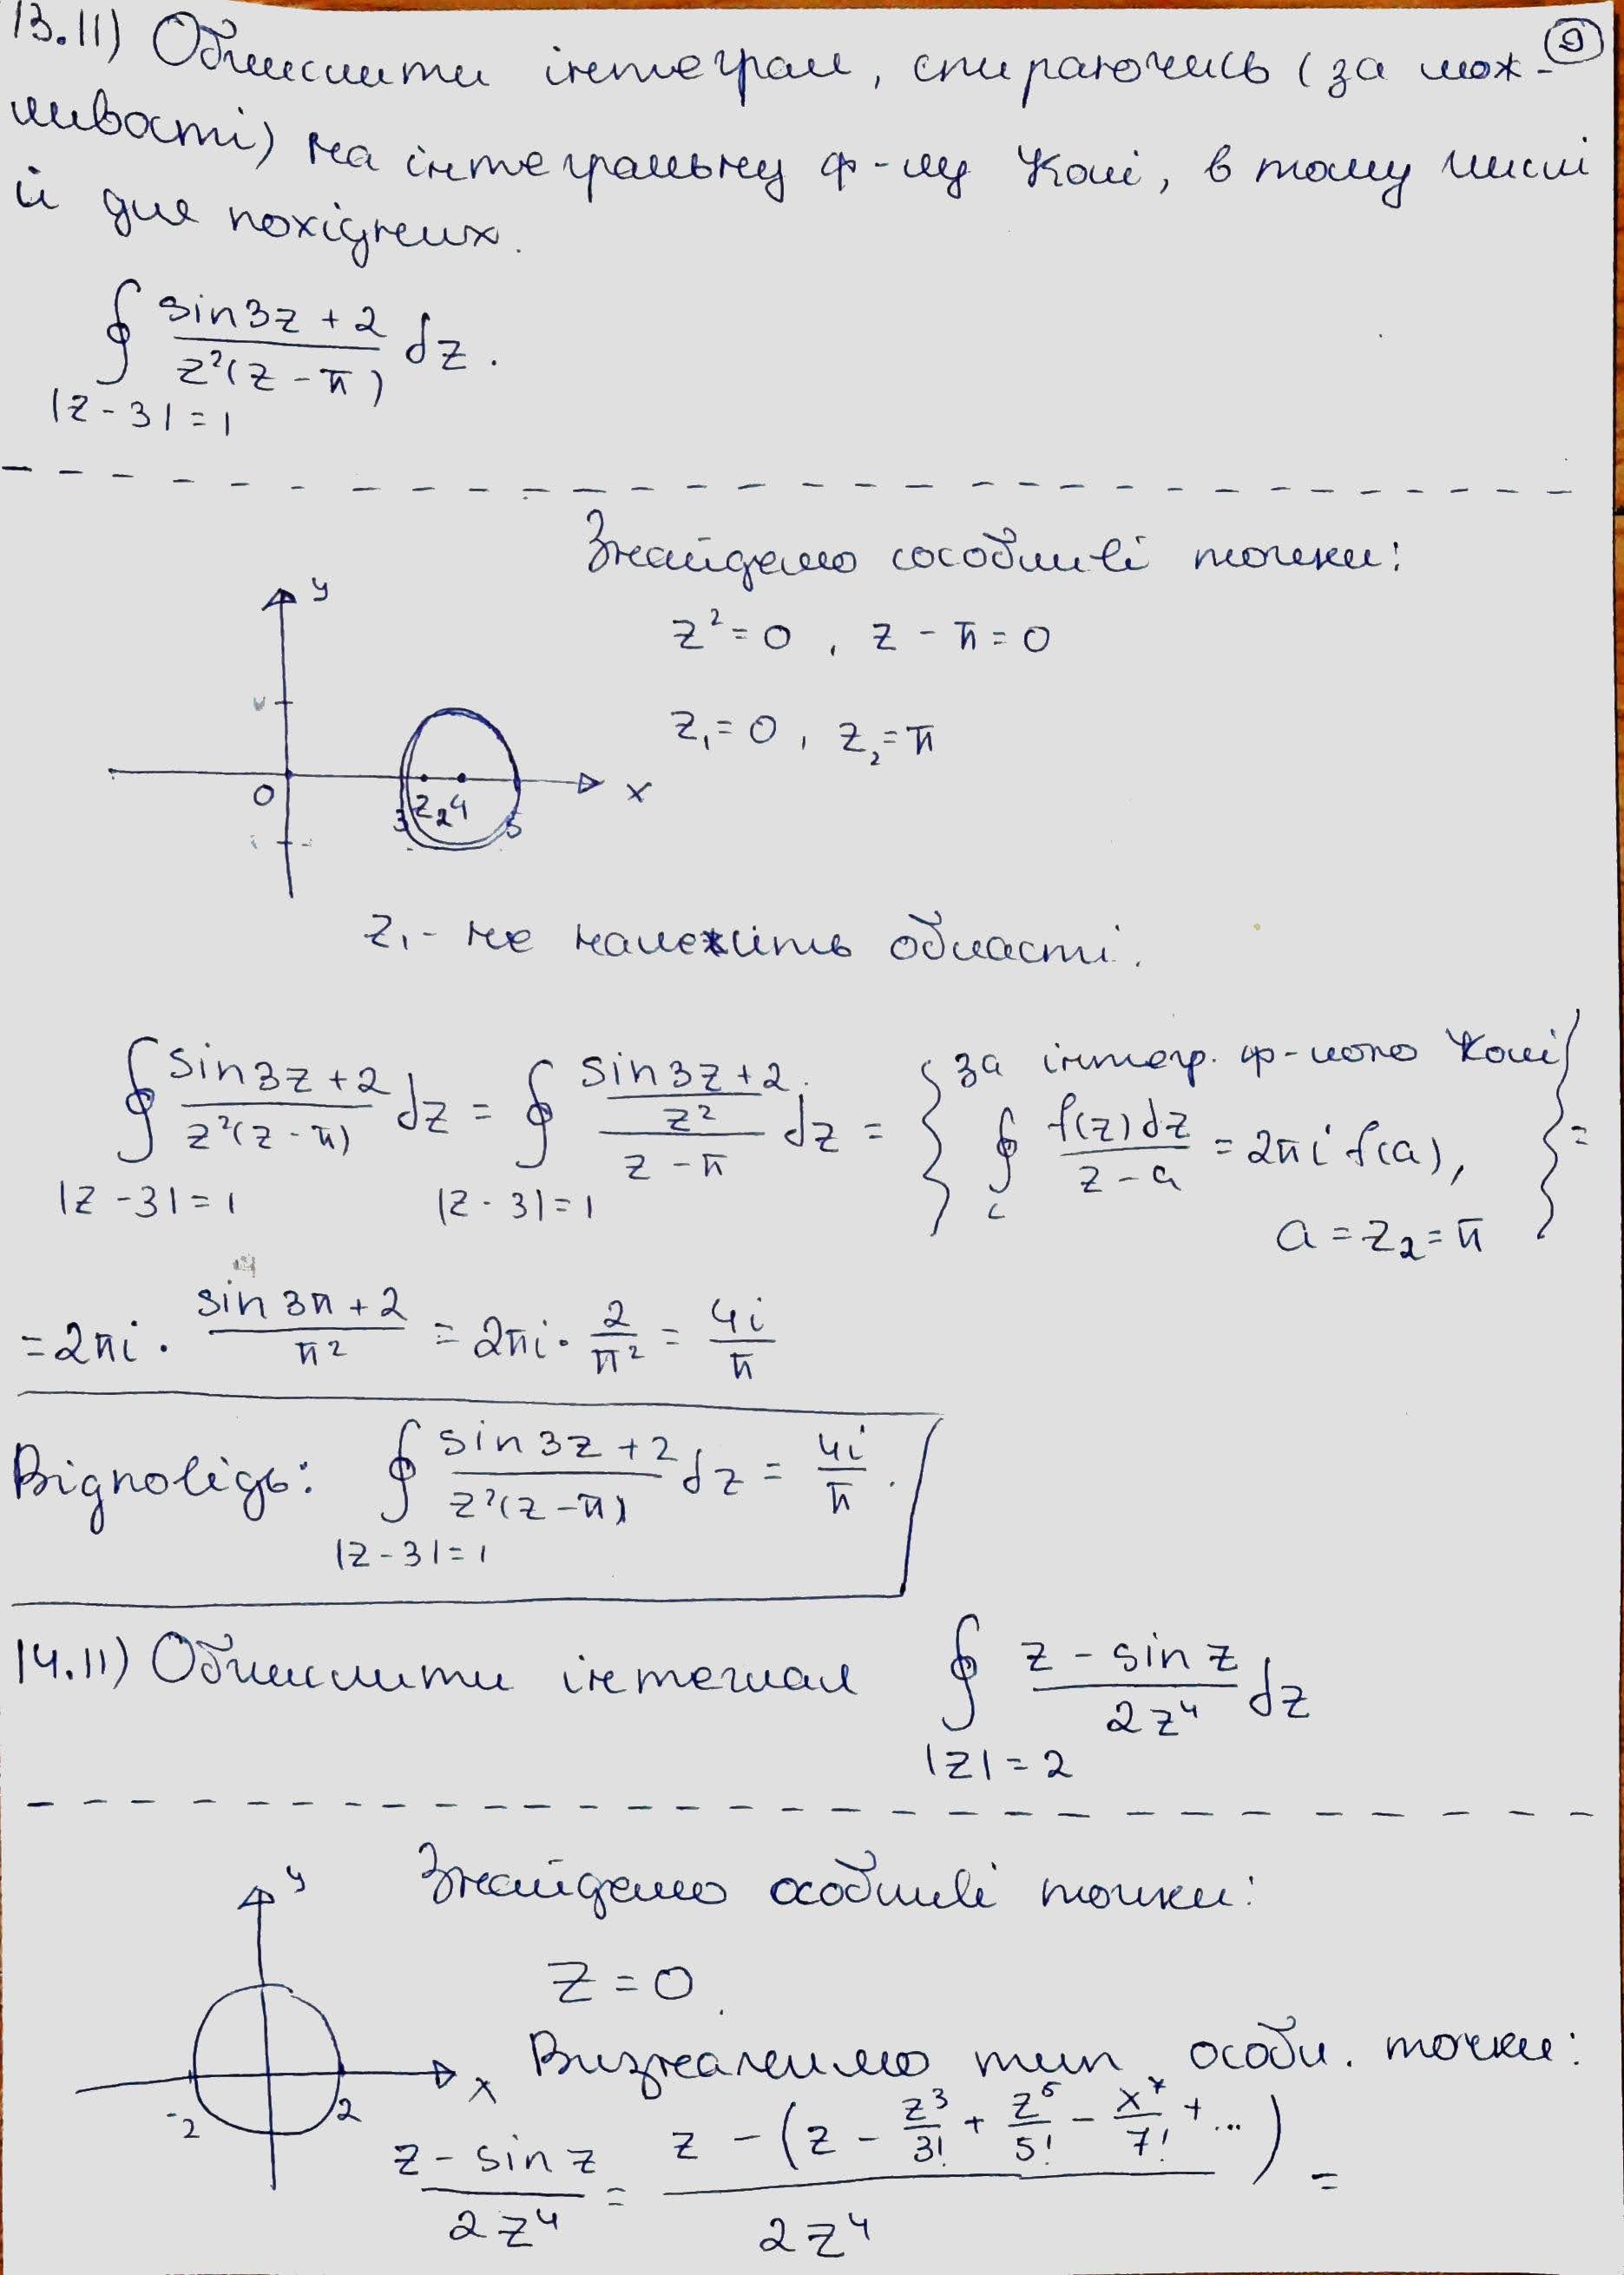 13.11) Обчислити інтеграл, спираючись (за мож- 9
ливості) на інтегральну ф-лу Коші, в тому числі
й для похідних.
∮ (sin3z + 2)/(z²(z - π)) dz.
|z - 3| = 1
Знайдемо сособливі точки:
y
z² = 0 , z - π = 0
z₁ = 0 , z₂ = π
0 3 z₂ 4 5 x
z₁ - не належить області.
∮ (sin3z + 2)/(z²(z - π)) dz = ∮ ((sin3z + 2)/z²)/(z - π) dz = { за інтегр. ф-лою Коші
∮ f(z)dz/(z - a) = 2πi f(a), } =
|z - 3| = 1 |z - 3| = 1 c
a = z₂ = π
= 2πi · (sin 3π + 2)/π² = 2πi · 2/π² = 4i/π
Відповідь: ∮ (sin 3z + 2)/(z²(z - π)) dz = 4i/π.
|z - 3| = 1
14.11) Обчислити інтеграл ∮ (z - sin z)/(2z⁴) dz
|z| = 2
y
Знайдемо особливі точки:
z = 0.
Визначимо тип особл. точки:
-2 2 x
(z - sin z)/(2z⁴) = (z - (z - z³/3! + z⁵/5! - x⁷/7! + ...))/(2z⁴) =